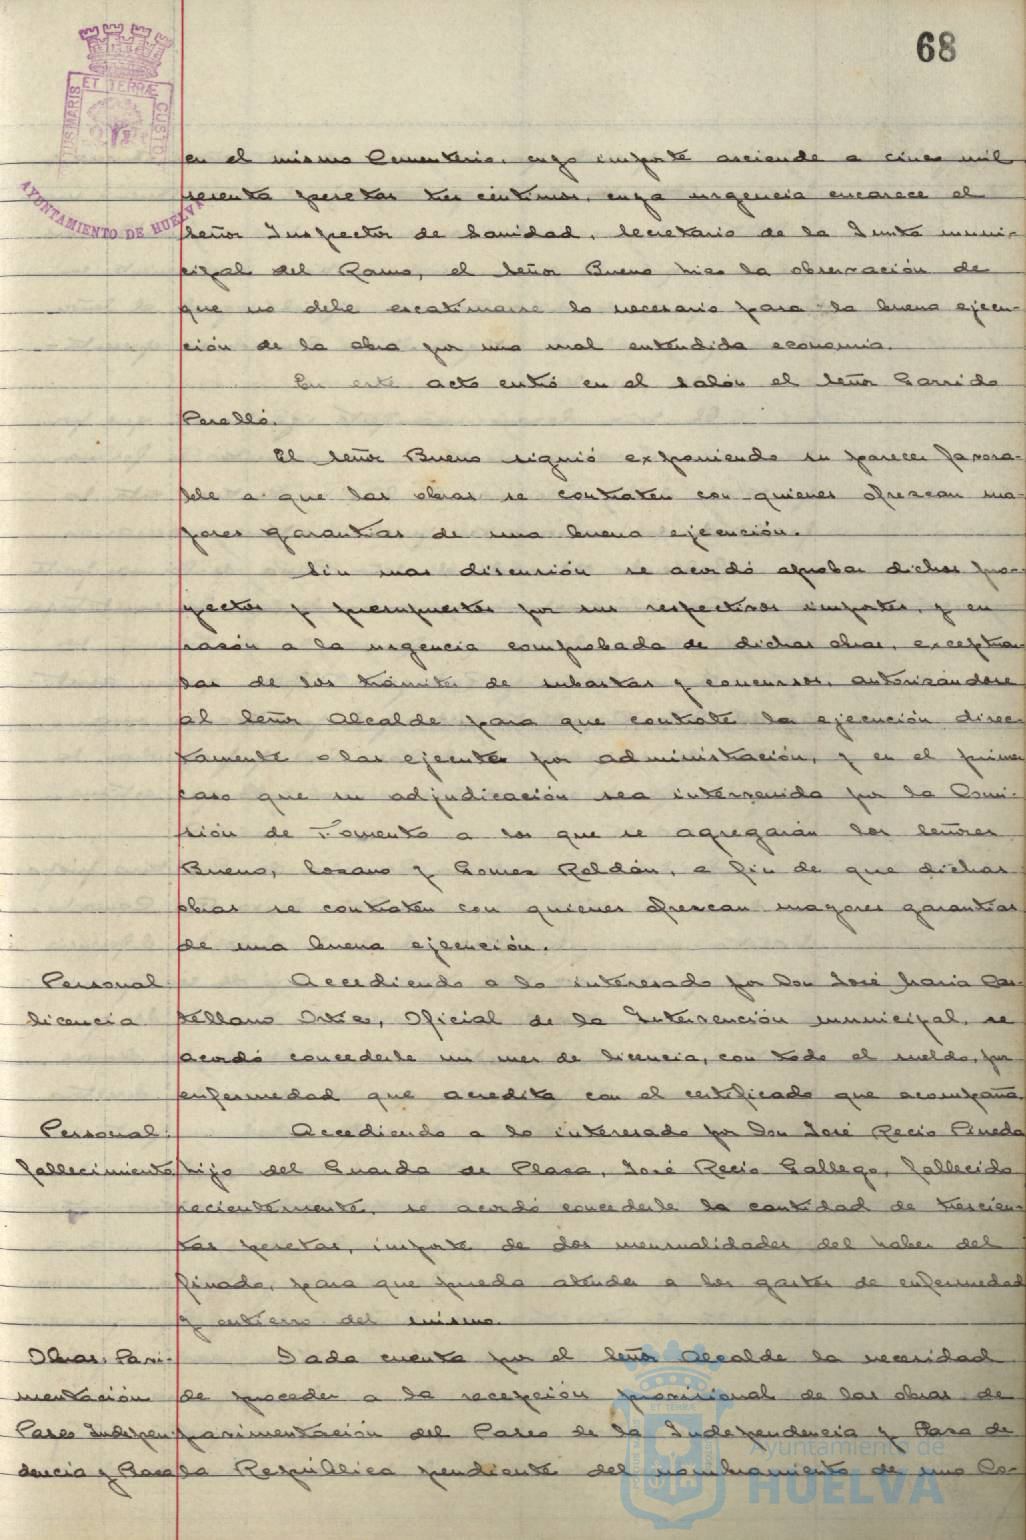 68
PORTUS MARIS ET TERRÆ CUSTODIA
AYUNTAMIENTO DE HUELVA
en el mismo Cementerio, cuyo importe asciende a cinco mil
sesenta pesetas tres céntimos, cuya urgencia encarece el
Señor Inspector de Sanidad, Secretario de la Junta muni-
cipal del Ramo, el Señor Bueno hizo la observación de
que no debe escatimarse lo necesario para la buena ejecu-
ción de la obra por una mal entendida economia.
En este acto entró en el salón el Señor Garrido
Perelló.
El Señor Bueno siguió exponiendo su parecer favora-
ble a que las obras se contraten con quienes ofrezcan ma-
yores garantias de una buena ejecución.
Sin mas discusión se acordó aprobar dichos pro-
yectos y presupuestos por sus respectivos importes, y en
razón a la urgencia comprobada de dichas obras, exceptuar-
las de los trámites de subastas y concursos, autorizandose
al Señor Alcalde para que contrate la ejecución direc-
tamente o las ejecute por administración, y en el primer
caso que su adjudicación sea intervenida por la Comi-
sión de Fomento a los que se agregarán los Señores
Bueno, Lozano y Gomez Roldán, a fin de que dichas
obras se contraten con quienes ofrezcan mayores garantias
de una buena ejecución.
Personal
licencia
Accediendo a lo interesado por Don José Maria Cas-
tellano Ortiz, Oficial de la Intervención municipal, se
acordó concederle un mes de licencia, con todo el sueldo, por
enfermedad que acredita con el certificado que acompaña.
Personal:
fallecimiento
Accediendo a lo interesado por Don José Recio Pineda
hijo del Guarda de Plaza, José Recio Gallego, fallecido
recientemente, se acordó concederle la cantidad de trescien-
tas pesetas, importe de dos mensualidades del haber del
finado, para que pueda atender a los gastos de enfermedad
y entierro del mismo.
Obras: Pavi-
mentación
Paseo Indepen-
dencia y Plaza
Dada cuenta por el Señor Alcalde la necesidad
de proceder a la recepción provisional de las obras de
pavimentación del Paseo de la Independencia y Plaza de
la República pendiente del nombramiento de una Co-
Ayuntamiento de
HUELVA